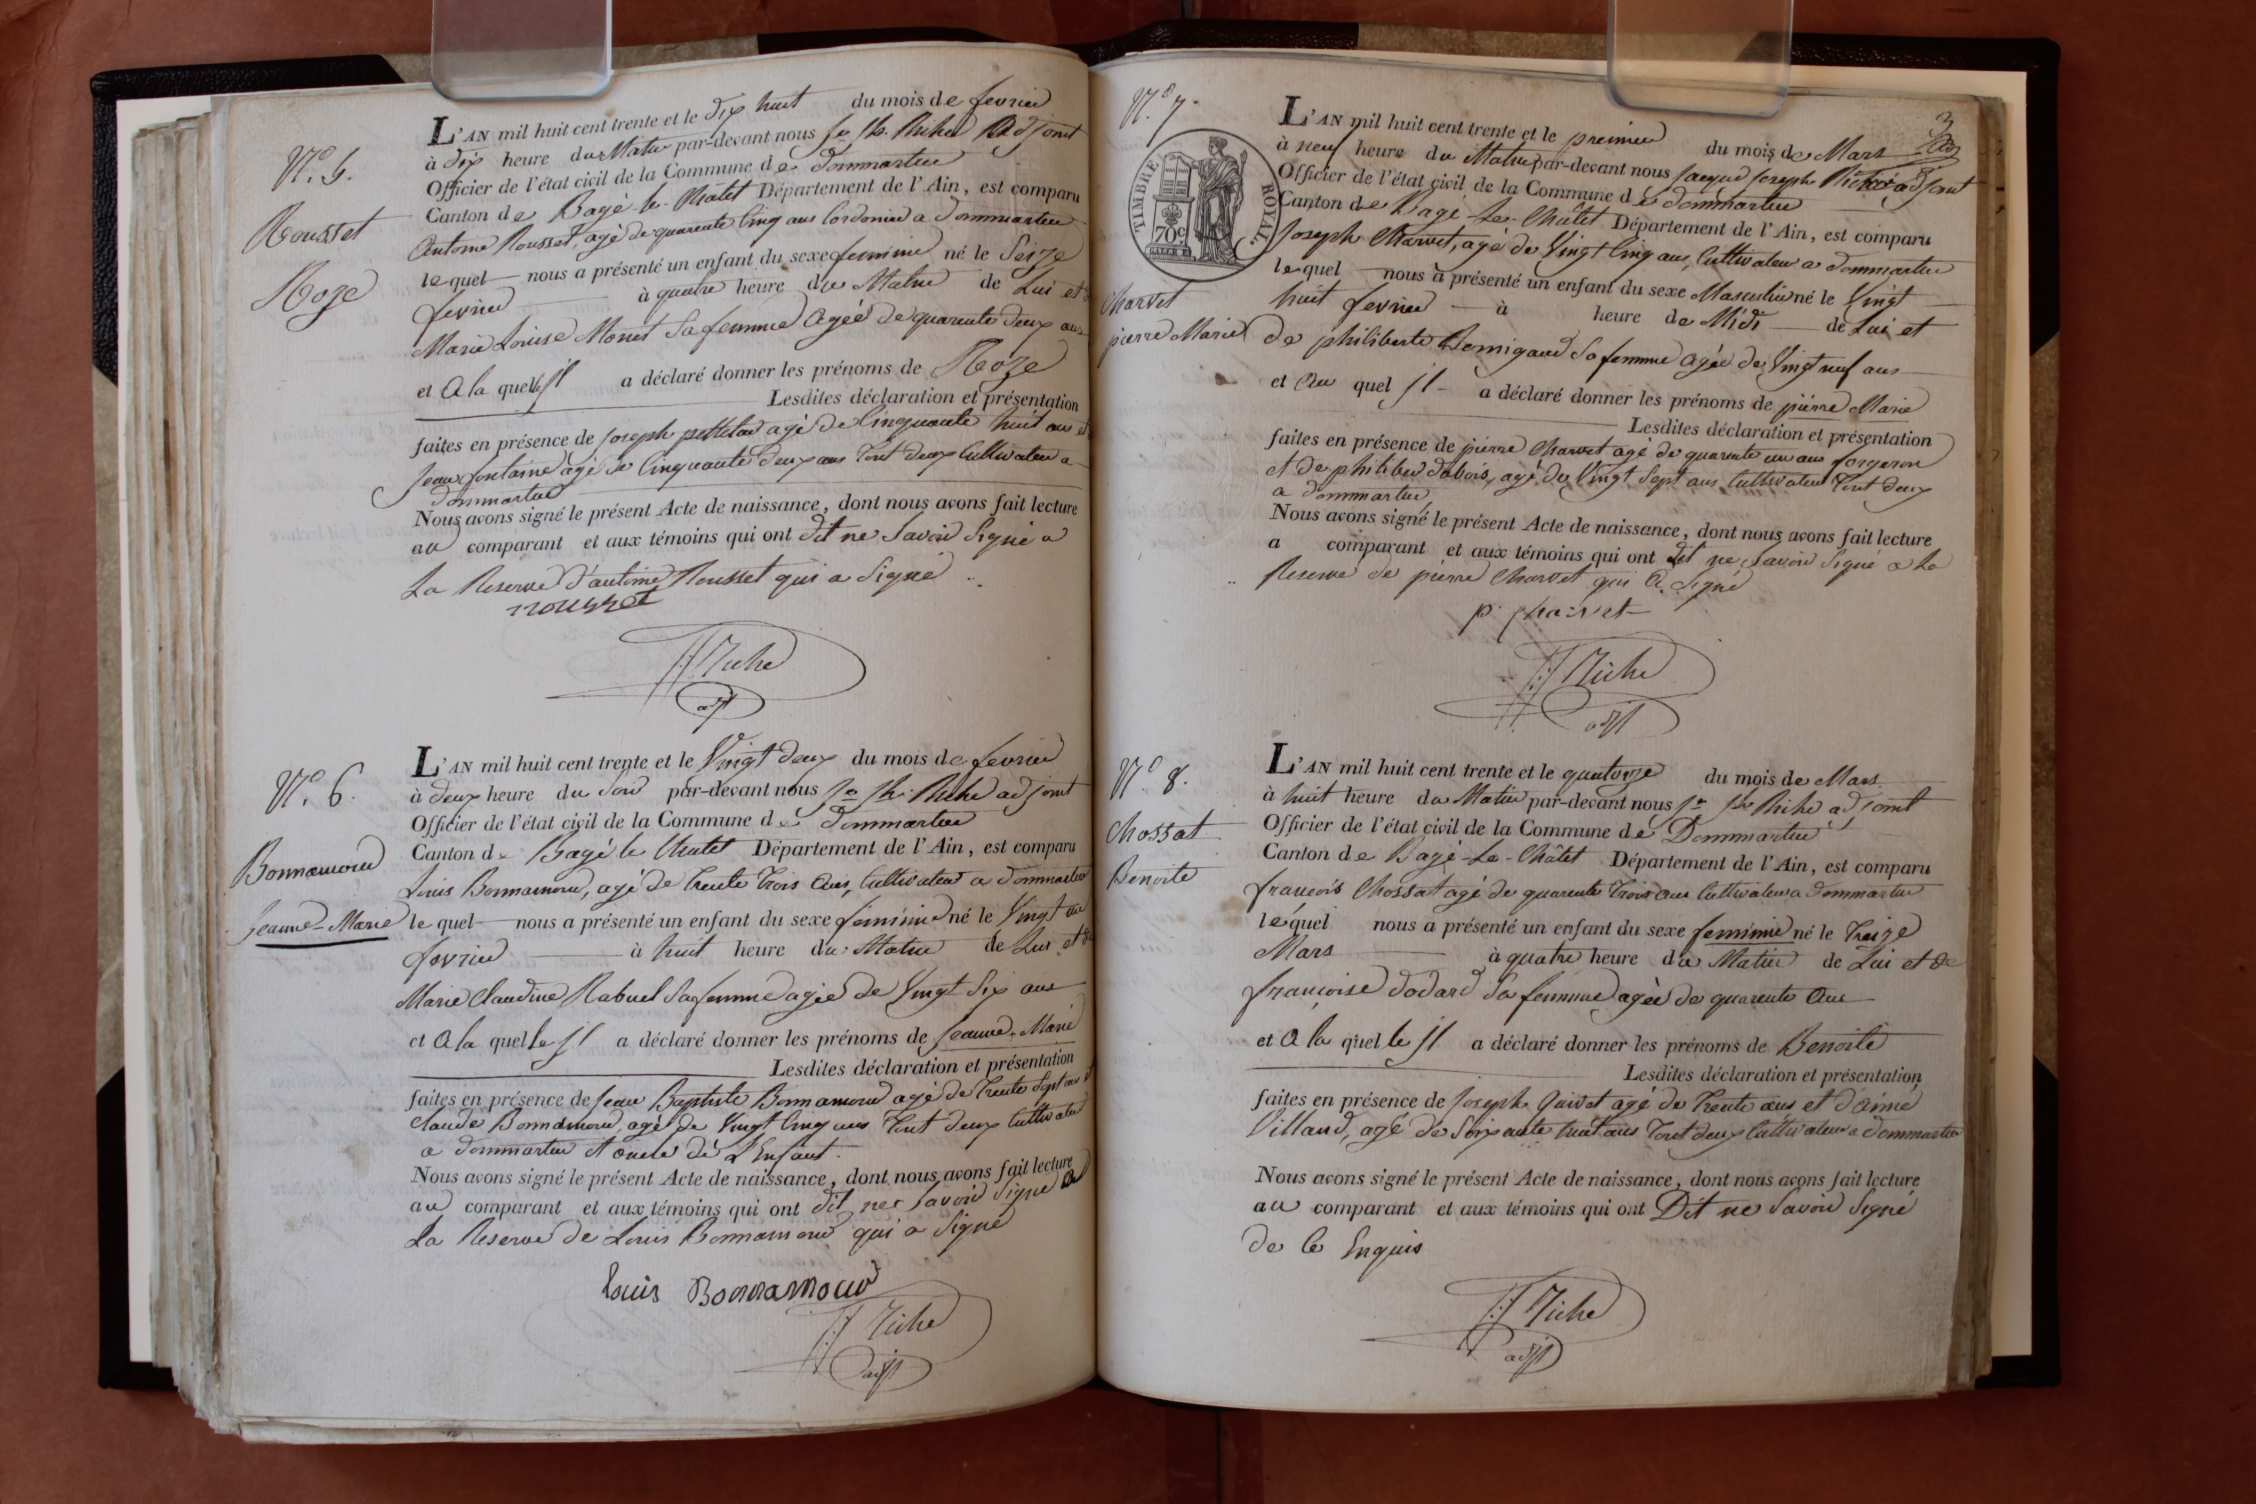 N.º 5.
Rousset
Roze
L'AN mil huit cent trente et le dix huit du mois de fevrier
à dix heure du Matin par-devant nous Je ph. Riche Adjoint
Officier de l'état civil de la Commune de dommartin
Canton de Bagé le Châtel Département de l'Ain, est comparu
Antoine Rousset, agé de quarente Cinq ans Cordonier a dommartin
lequel nous a présenté un enfant du sexe feminin né le Seize
fevrier à quatre heure du Matin de Lui et de
Marie Louise Monet Sa femme Agée de quarente deux ans
et A la quelle Il a déclaré donner les prénoms de Roze
Lesdites déclaration et présentation
faites en présence de Joseph agé de Cinquante huit ans et
Jean fontaine agé de Cinquante deux ans tout deux Cultivateur a
dommartin
Nous avons signé le présent Acte de naissance, dont nous avons fait lecture
au comparant et aux témoins qui ont dit ne Savoir Signé a
La Reserve d'antoine Rousset qui a Signé
rousset
JJ Riche
adjt
N.º 6.
Bonnamour
Jeanne-Marie
L'AN mil huit cent trente et le Vingt deux du mois de fevrier
à deux heure du Soir par-devant nous Je ph. Riche adjoint
Officier de l'état civil de la Commune de dommartin
Canton de Bagé le Chatel Département de l'Ain, est comparu
Louis Bonnamour, agé de trente trois Ans, Cultivateur a dommartin
lequel nous a présenté un enfant du sexe féminin né le Vingt un
fevrier à huit heure du Matin de Lui et de
Marie Claudine Rabuel Sa femme agée de Vingt Six ans
et A la quelle Il a déclaré donner les prénoms de Jeanne-Marie
Lesdites déclaration et présentation
faites en présence de Jean Baptiste Bonnamour agé de trente Sept ans et
Claude Bonnamour, agé de Vingt Cinq ans tout deux Cultivateur
a dommartin et oncle de L'Enfant.
Nous avons signé le présent Acte de naissance, dont nous avons fait lecture
au comparant et aux témoins qui ont dit ne Savoir Signé a
La Reserve de Louis Bonnamour qui a Signé
Louis Bonnamour
JJ Riche
adjt
3
N.º 7.
TIMBRE ROYAL
70c
Charvet
pierre Marie
L'AN mil huit cent trente et le premier du mois de Mars
à neuf heure du Matin par-devant nous Jacque Joseph Riche adjoint
Officier de l'état civil de la Commune de dommartin
Canton de Bagé-Le-Châtel Département de l'Ain, est comparu
Joseph Charvet, agé de Vingt Cinq ans, Cultivateur a dommartin
lequel nous a présenté un enfant du sexe Masculin né le Vingt
huit fevrier à heure de Midi de Lui et
de philiberte Bernigaud Sa femme Agée de Vingt neuf ans
et Au quel Il a déclaré donner les prénoms de pierre Marie
Lesdites déclaration et présentation
faites en présence de pierre Charvet agé de quarente un ans forgeron
et de philiber dubois, agé de Vingt Sept ans Cultivateur tout deux
a dommartin
Nous avons signé le présent Acte de naissance, dont nous avons fait lecture
a comparant et aux témoins qui ont dit ne Savoir Signé a La
Reserve de pierre Charvet qui A Signé
p. charvet
JJ Riche
adjt
N.º 8.
Chossat
Benoite
L'AN mil huit cent trente et le quatorze du mois de Mars
à huit heure du Matin par-devant nous Je ph Riche adjoint
Officier de l'état civil de la Commune de Dommartin
Canton de Bagé-Le-Châtel Département de l'Ain, est comparu
françois Chossat agé de quarente trois ans Cultivateur a dommartin
lequel nous a présenté un enfant du sexe feminin né le treize
Mars à quatre heure du Matin de Lui et de
françoise dodard Sa femme agée de quarente Ans
et A la quelle Il a déclaré donner les prénoms de Benoite
Lesdites déclaration et présentation
faites en présence de Joseph Guivet agé de trente ans et d'aimé
Villaud, agé de Soixante huit ans tout deux Cultivateur a dommartin
Nous avons signé le présent Acte de naissance, dont nous avons fait lecture
au comparant et aux témoins qui ont Dit ne Savoir Signé
de Ce Enquis
JJ Riche
adjt